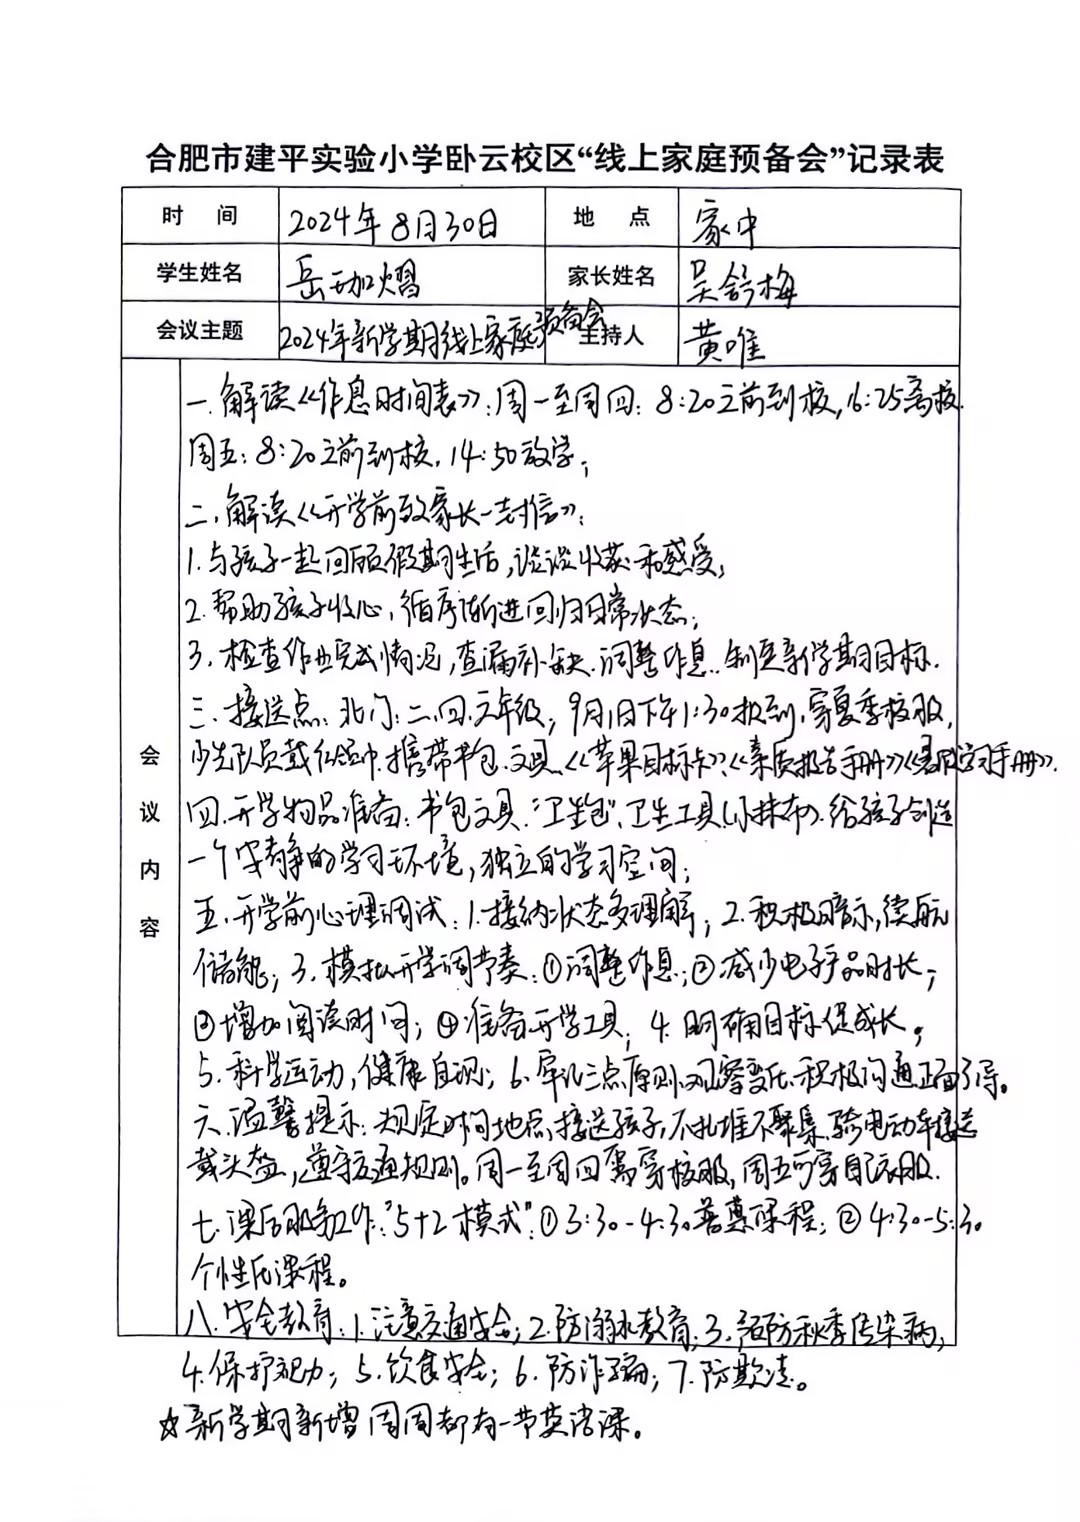 合肥市建平实验小学卧云校区“线上家庭预备会”记录表
时 间 2024年8月30日 地 点 家中
学生姓名 岳珈熠 家长姓名 吴舒梅
会议主题 2024年新学期线上家庭预备会 主持人 黄唯
会议内容
一.解读《作息时间表》:周一至周四:8:20之前到校,16:25离校.
周五:8:20之前到校,14:50放学;
二.解读《开学前致家长一封信》:
1.与孩子一起回顾假期生活,谈谈收获和感受;
2.帮助孩子收心,循序渐进回归日常状态;
3.检查作业完成情况,查漏补缺.调整作息.制定新学期目标.
三.接送点:北门:二、四、六年级;9月1日下午1:30报到,穿夏季校服,
少先队员戴红领巾.携带书包.文具.《苹果目标卡》、《素质报告手册》《暑假学习手册》.
四.开学物品准备:书包文具.“卫生包”、卫生工具(小抹布).给孩子创造
一个安静的学习环境,独立的学习空间;
五.开学前心理调试:1.接纳状态多理解;2.积极暗示,续航
储能;3.模拟开学调节奏:①调整作息;②减少电子产品时长;
③增加阅读时间;④准备开学工具;4.明确目标促成长;
5.科学运动,健康自测;6.牢记三点原则:观察变化.积极沟通.正面引导。
六.温馨提示:规定时间地点接送孩子,不扎堆不聚集.骑电动车接送
戴头盔,遵守交通规则。周一至周四需穿校服,周五可穿自己衣服.
七.课后服务工作:“5+2模式”:①3:30-4:30普惠课程;②4:30-5:30
个性化课程。
八.安全教育:1.注意交通安全;2.防溺水教育;3.预防秋季传染病;
4.保护视力;5.饮食安全;6.防诈骗;7.防欺凌。
☆新学期新增周周都有一节英语课。